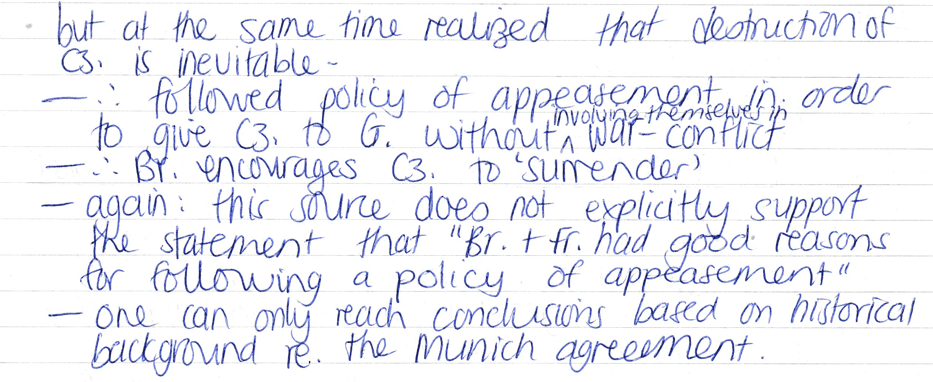 but at the same time realized that destruction of
C3. is inevitable -
— ∴ followed policy of appeasement in order
to give C3. to G. without ^ involving themselves in war-conflict
— ∴ Br. encourages C3. to 'surrender'
— again: this source does not explicitly support
the statement that "Br. + Fr. had good reasons
for following a policy of appeasement"
— one can only reach conclusions based on historical
background re. the Munich agreeement.